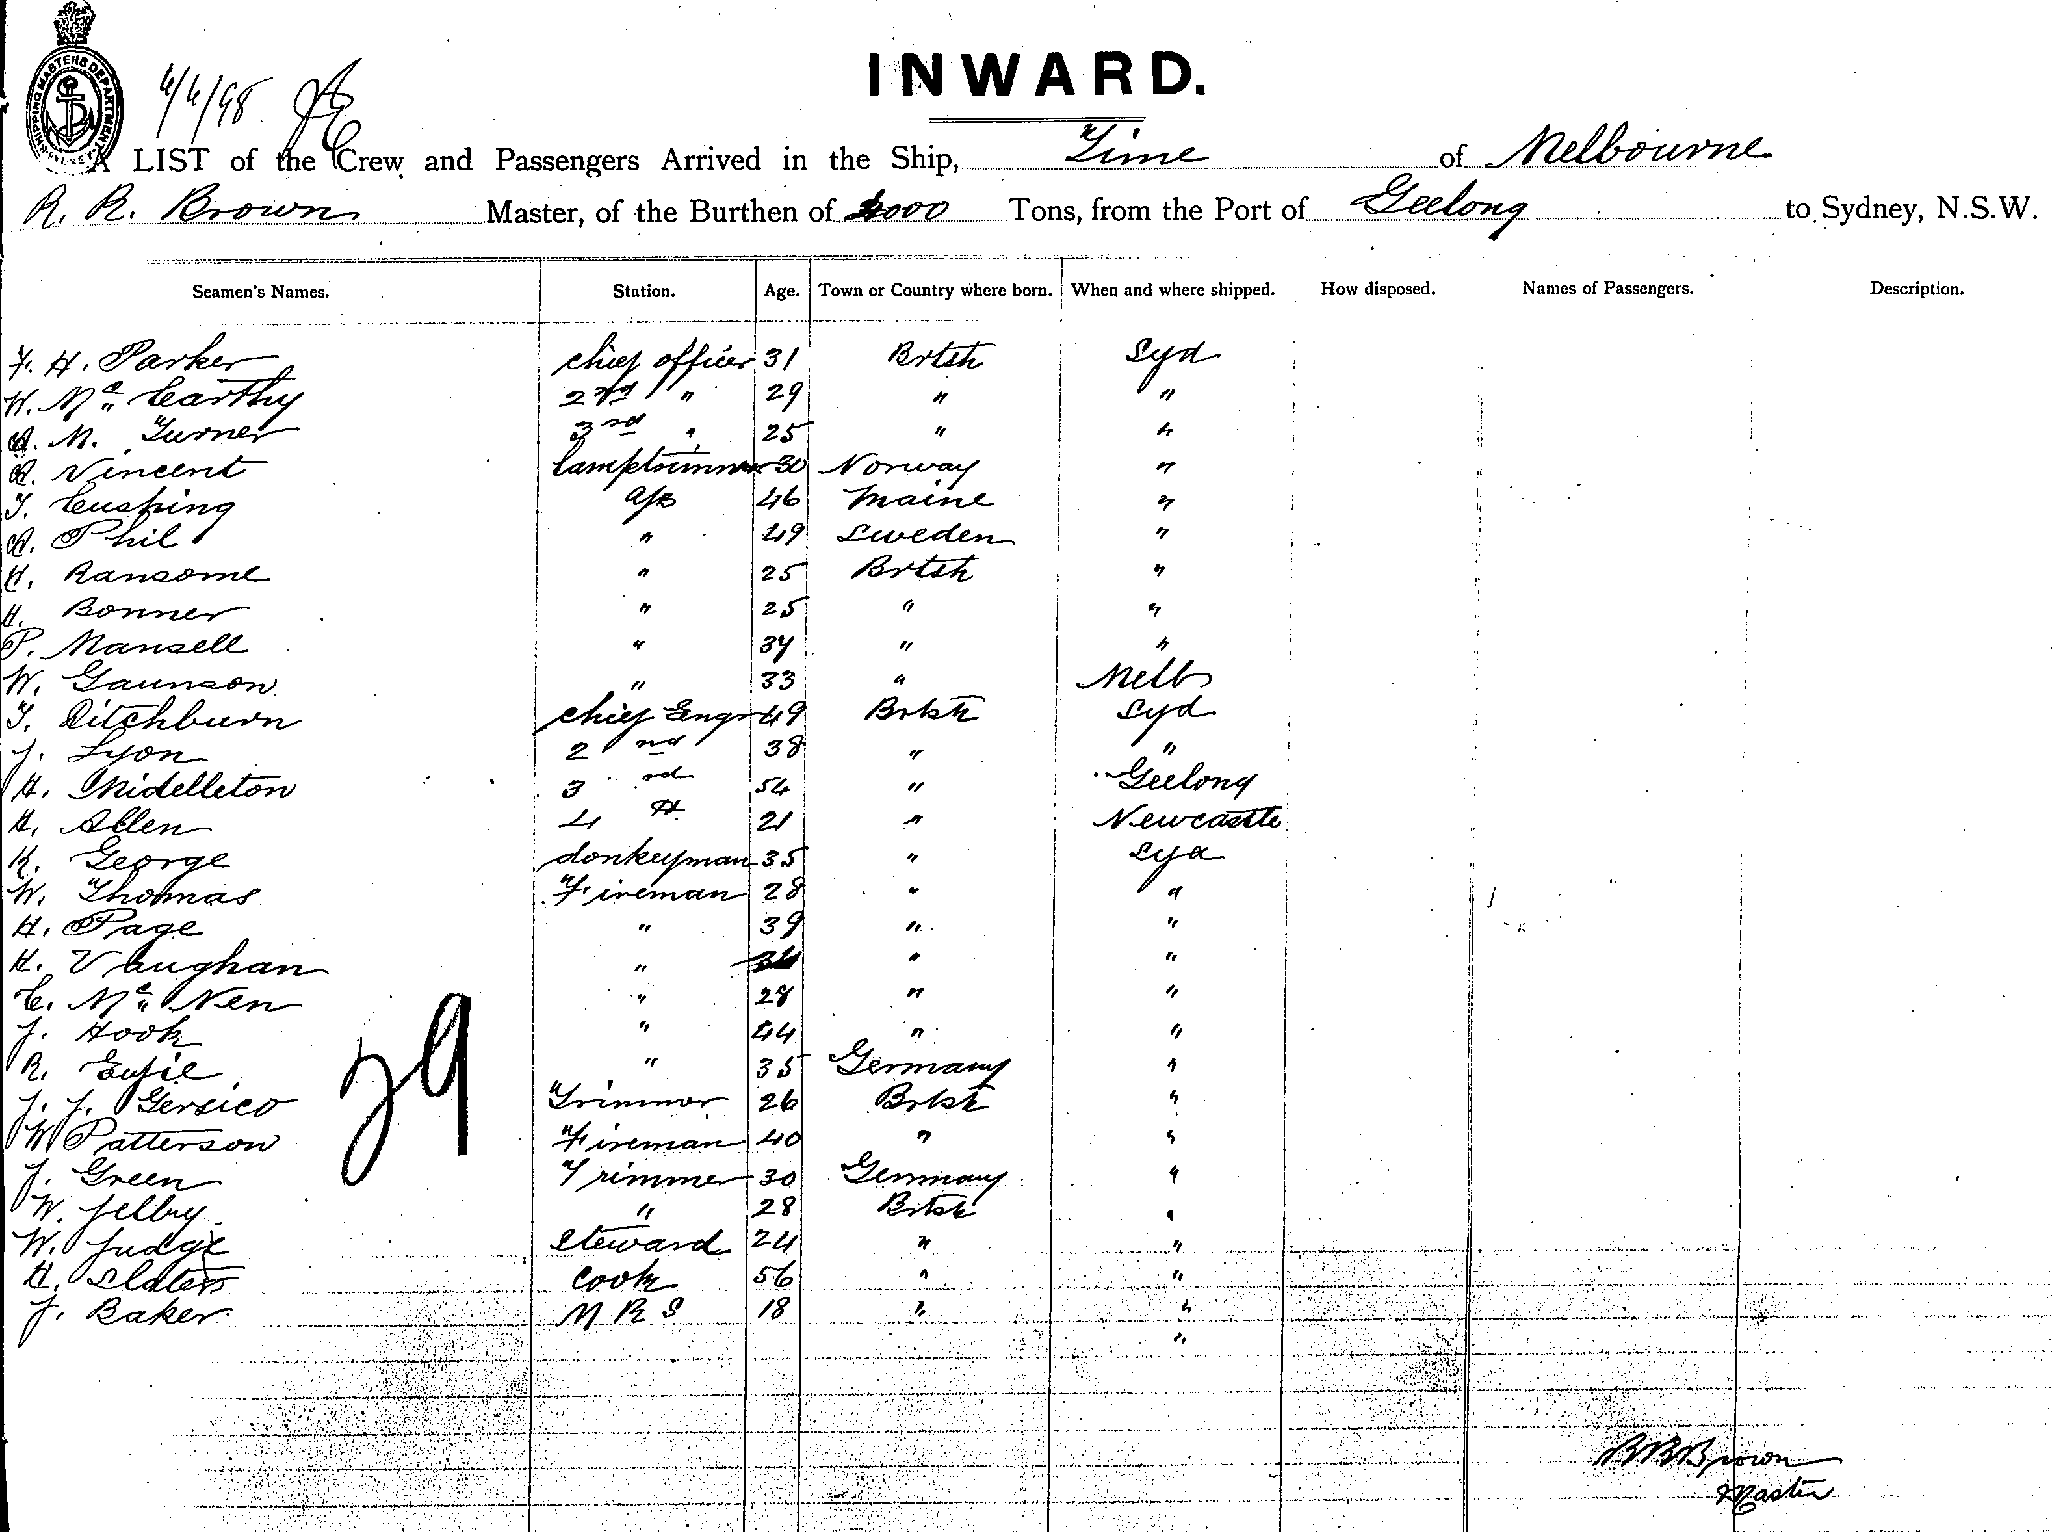 SHIPPING MASTERS DEPARTMENT
SYDNEY
4/4/98
INWARD.
A LIST of the Crew and Passengers Arrived in the Ship, Time of Melbourne
R. R. Brown Master, of the Burthen of 2000 Tons, from the Port of Geelong to Sydney, N.S.W.
Seamen's Names. Station. Age. Town or Country where born. When and where shipped. How disposed. Names of Passengers. Description.
F. H. Parker chief officer 31 Brtsh Syd
W. Mc Carthy 2nd " 29 " "
A. M. Turner 3rd " 25 " "
A. Vincent lamptrimmer 30 Norway "
T. Cushing a/b 46 Maine "
A. Phil " 49 Sweden "
H. Ransome " 25 Brtsh "
H. Bonner " 25 " "
P. Mansell " 37 " "
W. Gaunson " 33 " Melb
T. Ditchburn chief Engr 49 Brtsh Syd
J. Lyon 2nd 38 " "
H. Midelleton 3rd 54 " Geelong
H. Allen 4th 21 " Newcastle
K. George donkeyman 35 " Syd
W. Thomas Fireman 28 " "
H. Page " 39 " "
H. Vaughan " 34 " "
C. Mc Nen " 28 " "
J. Hook " 44 " "
R. " 35 Germany "
J. J. Gersico Trimmer 26 Brtsh "
W Patterson Fireman 40 " "
J. Green Trimmer 30 Germany "
W. Jelby " 28 Brtsh "
W. Judge steward 24 " "
H. Slater cook 56 " "
J. Baker M R S 18 " "
"
29
R R Brown
Master